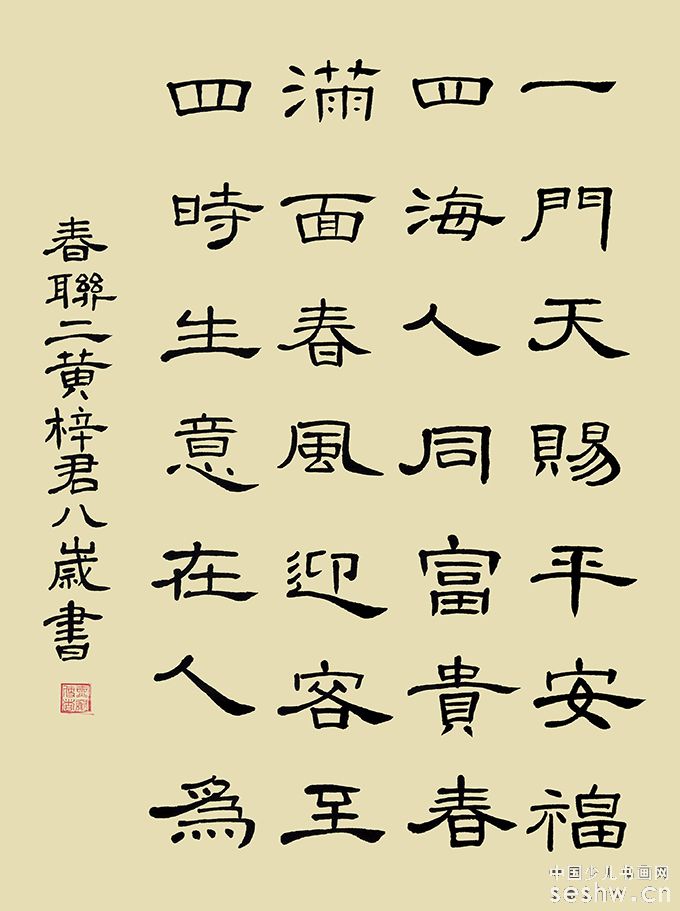 一門天賜平安福
四海人同富貴春
滿面春風迎客至
四時生意在人為
春聯二黄梓君八歲書
中国少儿书画网
seshw.cn